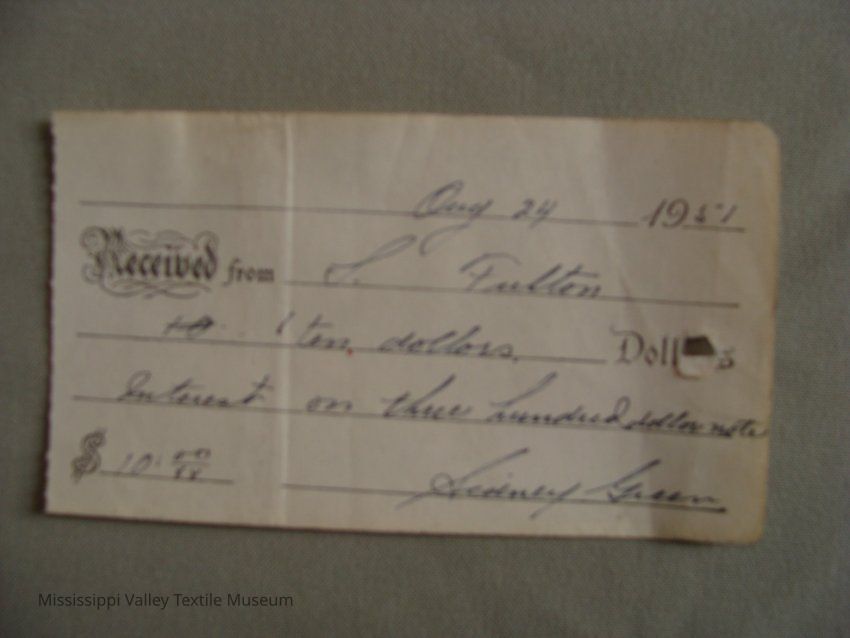 Aug 24 1951
Received from S. Fulton
ten dollars. Doll s
Interest on three hundred dollar note
$ 10.00 Sidney Green
Mississippi Valley Textile Museum